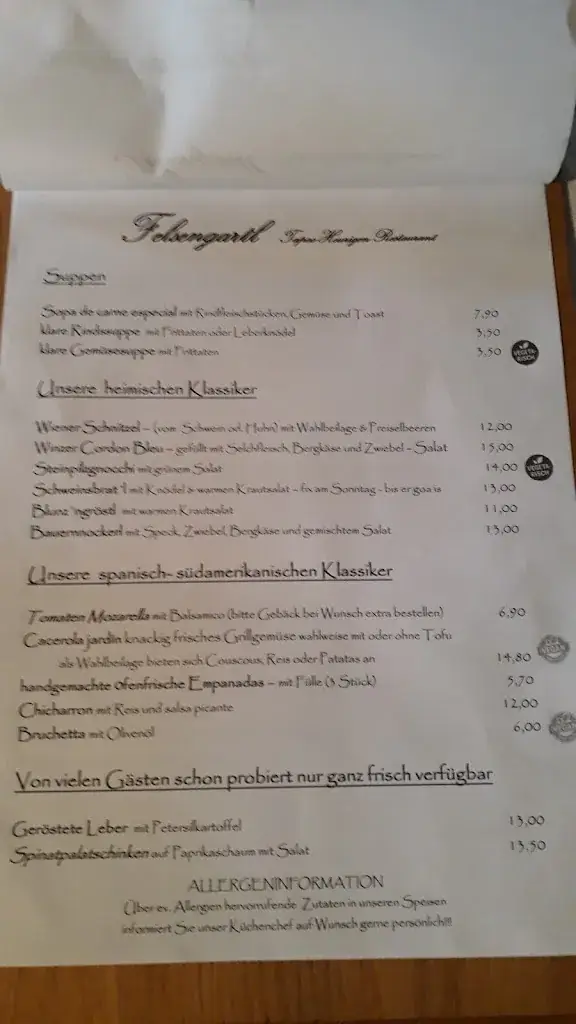 Felsengartl Tapas-Heurigen-Restaurant
Suppen
Sopa de carne especial mit Rindfleischstücken, Gemüse und Toast 7,90
klare Rindssuppe mit Frittaten oder Leberknödel 3,50
klare Gemüsesuppe mit Frittaten 3,50 VEGETARISCH
Unsere heimischen Klassiker
Wiener Schnitzel – (vom Schwein od. Huhn) mit Wahlbeilage & Preiselbeeren 12,00
Winzer Cordon Bleu – gefüllt mit Selchfleisch, Bergkäse und Zwiebel - Salat 15,00
Steinpilzgnocchi mit grünem Salat 14,00 VEGETARISCH
Schweinsbrat'l mit Knödel & warmen Krautsalat – fix am Sonntag - bis er goa is 13,00
Blunz'ngröstl mit warmen Krautsalat 11,00
Bauernnockerl mit Speck, Zwiebel, Bergkäse und gemischtem Salat 13,00
Unsere spanisch- südamerikanischen Klassiker
Tomaten Mozarella mit Balsamico (bitte Gebäck bei Wunsch extra bestellen) 6,90
Cacerola jardin knackig frisches Grillgemüse wahlweise mit oder ohne Tofu
als Wahlbeilage bieten sich Couscous, Reis oder Patatas an 14,80 VEGAN
handgemachte ofenfrische Empanadas – mit Fülle (3 Stück) 5,70
Chicharron mit Reis und salsa picante 12,00
Bruchetta mit Olivenöl 6,00
Von vielen Gästen schon probiert nur ganz frisch verfügbar
Geröstete Leber mit Petersilkartoffel 13,00
Spinatpalatschinken auf Paprikaschaum mit Salat 13,50
ALLERGENINFORMATION
Über ev. Allergien hervorrufende Zutaten in unseren Speisen
informiert Sie unser Küchenchef auf Wunsch gerne persönlich!!!